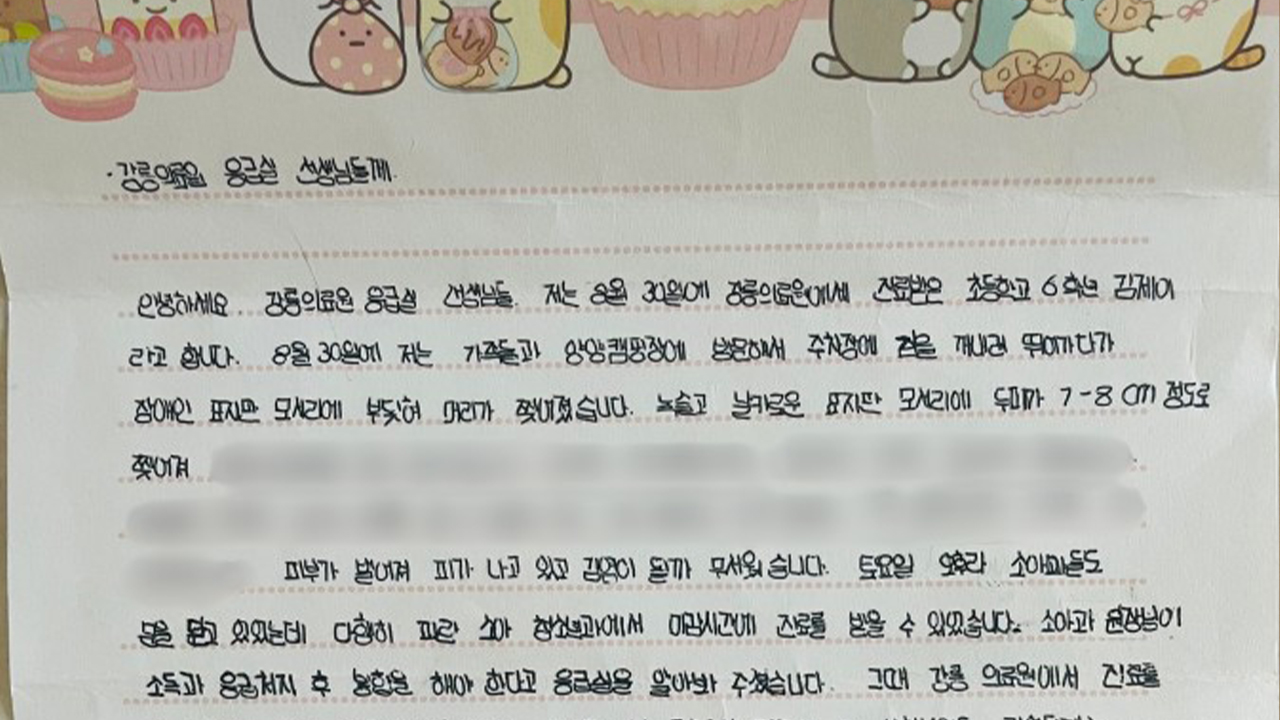 ·강릉의료원 응급실 선생님들께.
안녕하세요. 강릉의료원 응급실 선생님들. 저는 8월 30일에 강릉의료원에서 진료받은 초등학교 6학년 김제이
라고 합니다. 8월 30일에 저는 가족들과 양양캠핑장에 방문해서 주차장에 짐을 꺼내러 뛰어가다가
장애인 표지판 모서리에 부딪혀 머리가 찢어졌습니다. 녹슬고 날카로운 표지판 모서리에 두피가 7-8cm 정도로
찢어져
피부가 벌어져 피가 나고 있고 감염이 될까 무서웠습니다. 토요일 오후라 소아과들도
문을 닫고 있었는데 다행히 파란 소아 청소년과에서 마감시간에 진료를 받을 수 있었습니다. 소아과 원장님이
소독과 응급처치 후 봉합을 해야 한다고 응급실을 알아봐 주셨습니다. 그때 강릉 의료원에서 진료를